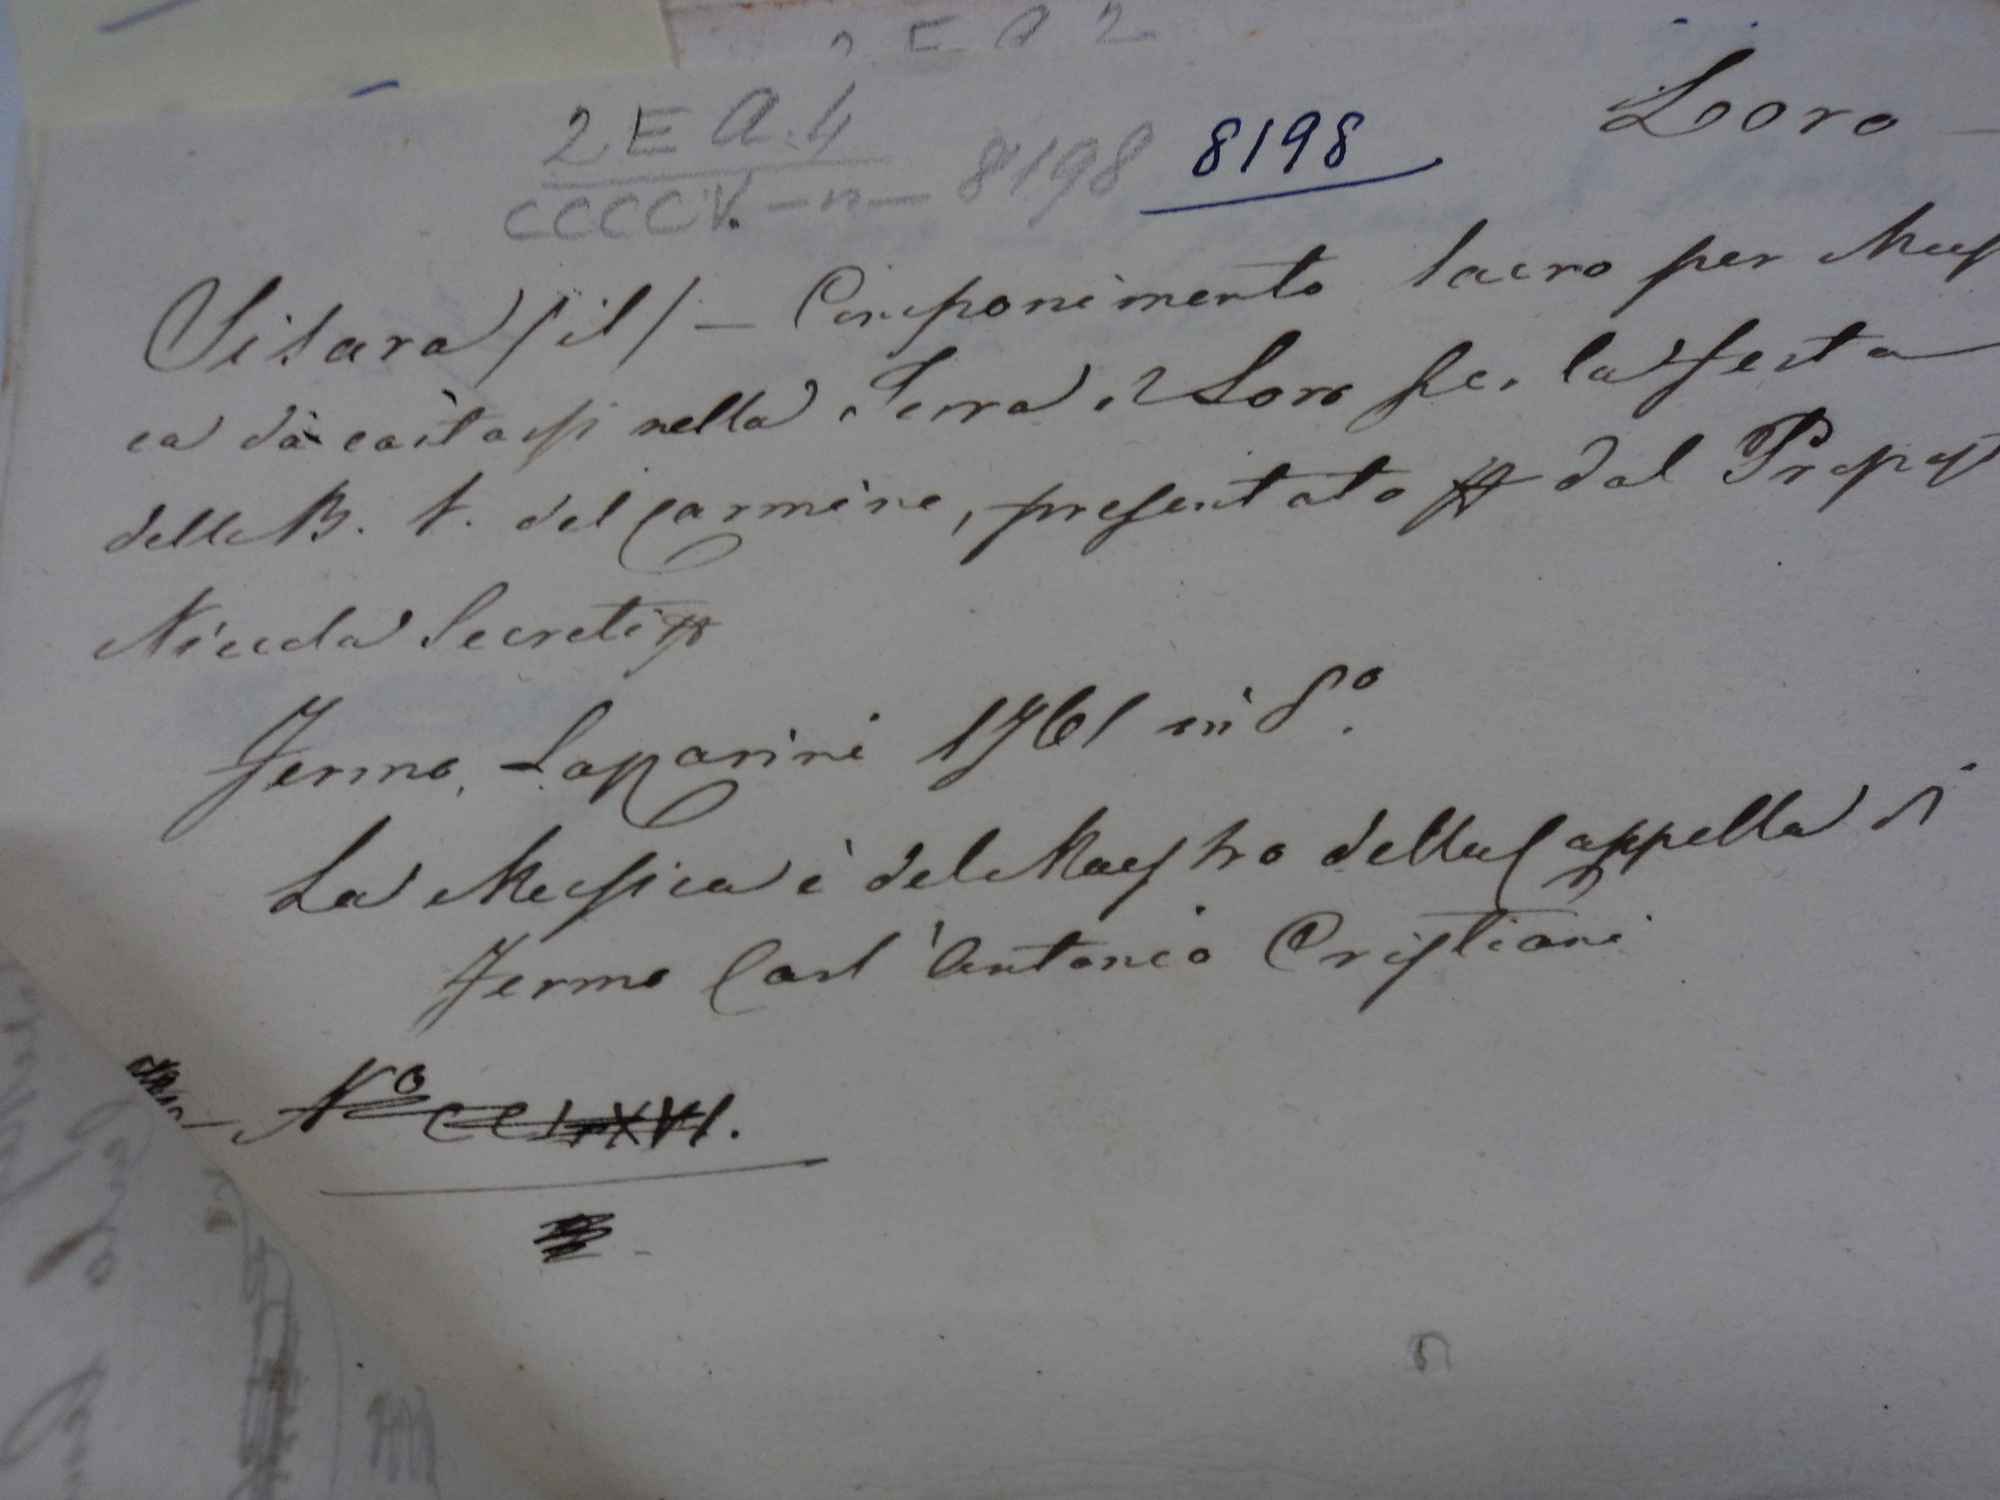 2 E A 2
2 E A. 4
CCCCV. - n - 8198 8198
Loro
Sisara (il) - Componimento sacro per Mus
ca da cantassi nella Terra di Loro per la festa
della B. V. del Carmine, presentato dal Propos
Niccola Secreti
Fermo, Lazzarini 1761 in 8º.
La Musica è del Maestro della Cappella di
Fermo Carl'Antonio Cristiani
Nº CCLXXVI.